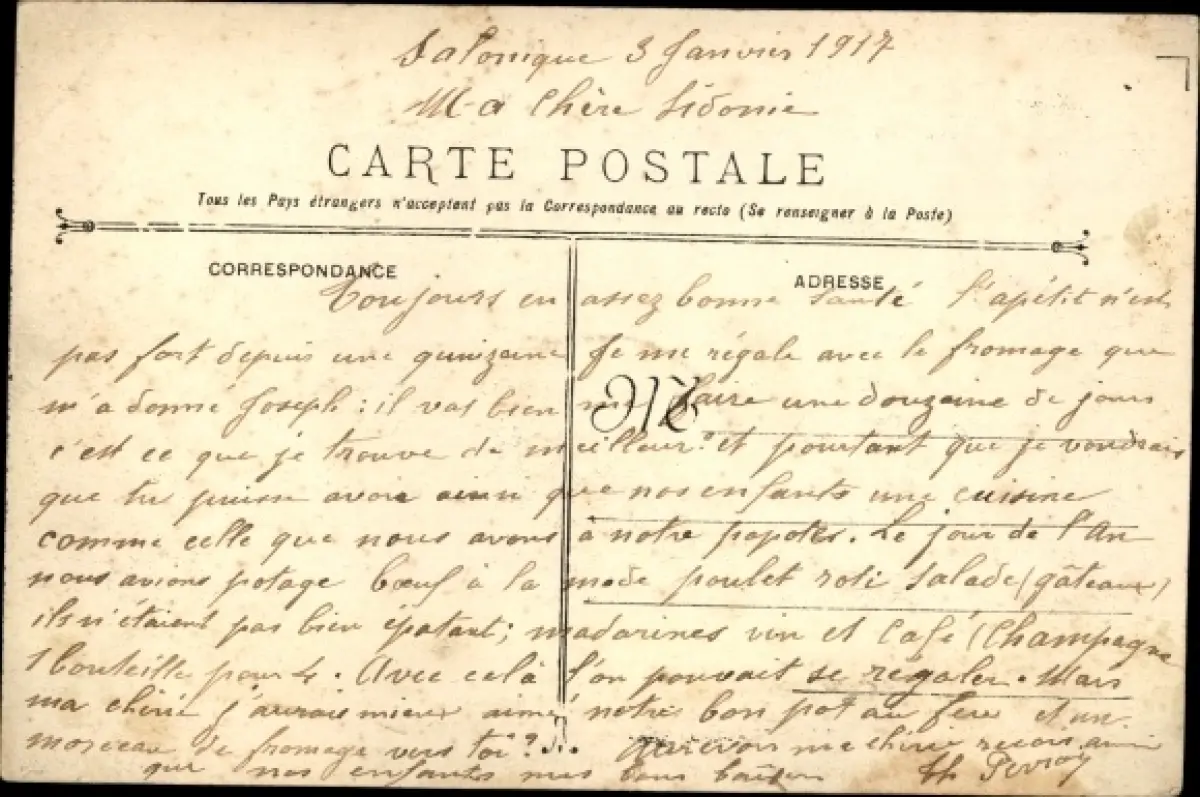 Salonique 3 Janvier 1917
M-a Chère Sidonie
CARTE POSTALE
Tous les Pays étrangers n'acceptent pas la Correspondance au recto (Se renseigner à la Poste)
CORRESPONDANCE
ADRESSE
Toujours en assez bonne santé l'apétit n'est
pas fort depuis une quinzaine Je me régale avec le fromage que
m'a donné Joseph : il vas bien me faire une douzaine de jours
M
c'est ce que je trouve de meilleur. et pourtant que je voudrais
que tu puisse avoir ainsi que nos enfants une cuisine
comme celle que nous avons à notre popotes. Le jour de l'An
nous avions potage bœuf à la mode poulet roti salade (gâteaux)
ils n'étaient pas bien épatant; madarines vin et Café (Champagne
1 bouteille pour 4. Avec celà l'on pouvait se régaler. Mais
ma chérie j'aurais mieux aimé notre bon pot au feu et un
morceau de fromage vers toi? Aurevoir ma chérie recois ainsi
que nos enfants mes bons baisers Th Perroy